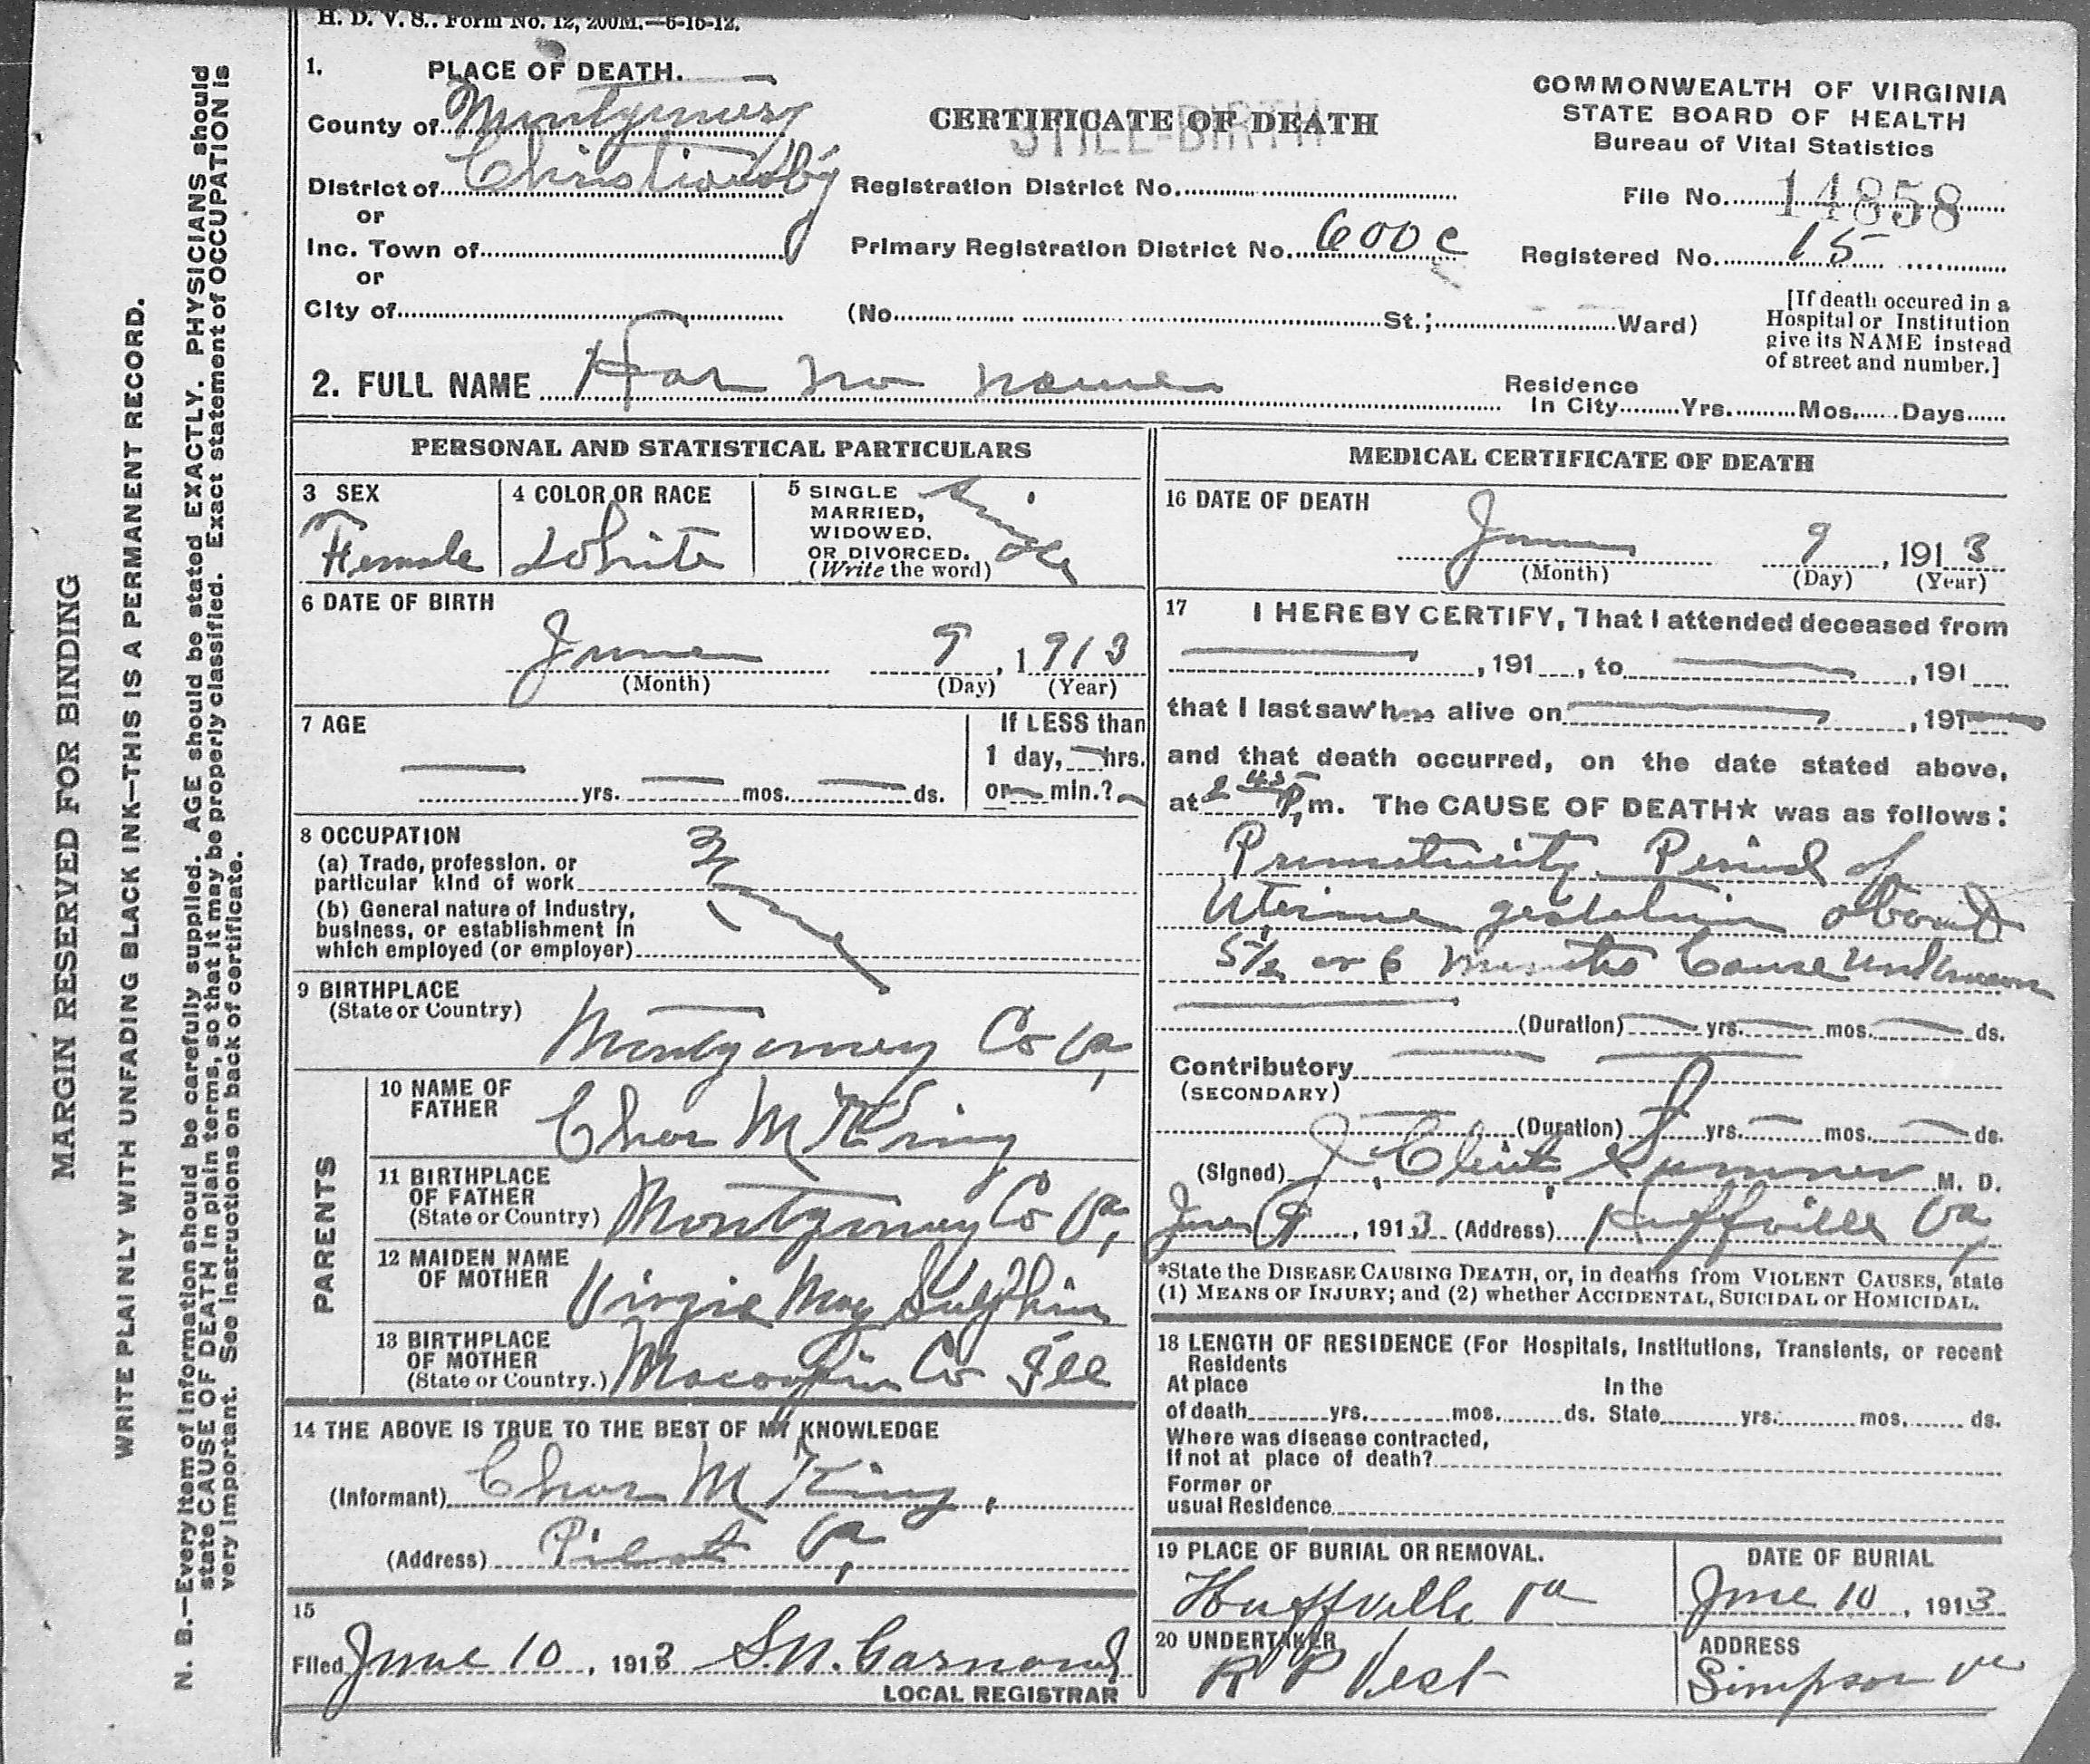 H. D. V. S.. Form No. 12, 200M.—6-16-12.
1. PLACE OF DEATH.
County of Montgomery
District of Christiansbg
or
Inc. Town of
or
City of
CERTIFICATE OF DEATH
STILL-BIRTH
Registration District No.
Primary Registration District No. 600 c
(No. St.; Ward)
COMMONWEALTH OF VIRGINIA
STATE BOARD OF HEALTH
Bureau of Vital Statistics
File No. 14858
Registered No. 15
[If death occured in a
Hospital or Institution
give its NAME instead
of street and number.]
2. FULL NAME Has no name
Residence
In City Yrs. Mos. Days
PERSONAL AND STATISTICAL PARTICULARS
3 SEX
Female
4 COLOR OR RACE
White
5 SINGLE
MARRIED,
WIDOWED.
OR DIVORCED.
(Write the word)
Single
6 DATE OF BIRTH
June 9, 1913
(Month) (Day) (Year)
7 AGE
If LESS than
1 day, hrs.
or min.?
yrs. mos. ds.
8 OCCUPATION
(a) Trade, profession, or
particular kind of work
(b) General nature of Industry,
business, or establishment in
which employed (or employer)
9 BIRTHPLACE
(State or Country)
Montgomery Co Va,
PARENTS
10 NAME OF
FATHER
Chas M King
11 BIRTHPLACE
OF FATHER
(State or Country)
Montgomery Co Va,
12 MAIDEN NAME
OF MOTHER
Virgie May Sulphin
13 BIRTHPLACE
OF MOTHER
(State or Country.)
Macoupin Co Ill
14 THE ABOVE IS TRUE TO THE BEST OF MY KNOWLEDGE
(Informant) Chas M King,
(Address) Pilot Va,
15
Filed June 10, 1913 S.N. Garnand
LOCAL REGISTRAR
MEDICAL CERTIFICATE OF DEATH
16 DATE OF DEATH
June 9, 1913
(Month) (Day) (Year)
17 I HEREBY CERTIFY, That I attended deceased from
, 191 , to , 191
that I last saw h alive on , 191
and that death occurred, on the date stated above,
at 2 45 P, m. The CAUSE OF DEATH★ was as follows:
Prematurity Period of
Uterine gestation about
5½ or 6 months Cause unknown
(Duration) yrs. mos. ds.
Contributory
(SECONDARY)
(Duration) yrs. mos. ds.
(Signed) J. Clint Sumner M. D.
June 9, 1913 (Address) Huffville Va,
*State the DISEASE CAUSING DEATH, or, in deaths from VIOLENT CAUSES, state
(1) MEANS OF INJURY; and (2) whether ACCIDENTAL, SUICIDAL or HOMICIDAL.
18 LENGTH OF RESIDENCE (For Hospitals, Institutions, Transients, or recent
Residents
At place In the
of death yrs. mos. ds. State yrs. mos. ds.
Where was disease contracted,
If not at place of death?
Former or
usual Residence
19 PLACE OF BURIAL OR REMOVAL.
Huffville Va
DATE OF BURIAL
June 10, 1913
20 UNDERTAKER
R P Vest
ADDRESS
Simpson Va
MARGIN RESERVED FOR BINDING
WRITE PLAINLY WITH UNFADING BLACK INK—THIS IS A PERMANENT RECORD.
N. B.—Every item of information should be carefully supplied. AGE should be stated EXACTLY. PHYSICIANS should
state CAUSE OF DEATH in plain terms, so that it may be properly classified. Exact statement of OCCUPATION is
very important. See instructions on back of certificate.